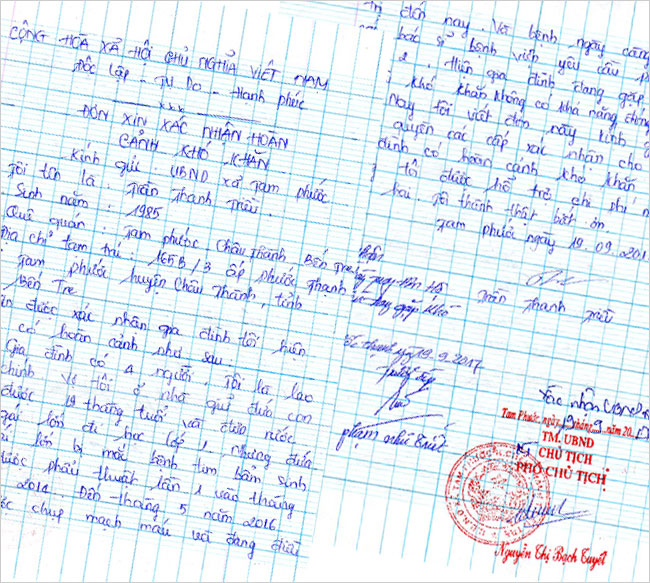 CỘNG HÒA XÃ HỘI CHỦ NGHĨA VIỆT NAM
Độc lập - Tự Do - Hạnh phúc
ĐƠN XIN XÁC NHẬN HOÀN
CẢNH KHÓ KHĂN
Kính gửi : UBND xã Tam phước
Tôi tên là : Trần Thanh Triều.
Sinh năm : 1985
Quê quán : Tam phước Châu Thành Bến Tre
Địa chỉ tạm trú : 165B/3 ấp phước Thạnh
Tam phước huyện Châu Thành, tỉnh
Bến Tre
được xác nhận gia đình tôi hiện
có hoàn cảnh như sau.
Gia đình có 4 người. Tôi là lao
chính vợ tôi ở nhà giữ đứa con
được 19 tháng tuổi và đứa
gái lớn đi học lớp 1, nhưng đứa
lớn bị mắc bệnh tim bẩm sinh
được phẫu thuật lần 1 vào tháng
2014. Đến tháng 5 năm 2016
chụp mạch máu và đang điều
trị đến nay. Vì bệnh ngày càng
bác sĩ bệnh viện yêu cầu
2. Hiện gia đình đang gặp
khó khăn không có khả năng
Nay tôi viết đơn này kính
quyền các cấp xác nhận cho
đình có hoàn cảnh khó khăn
tôi được hỗ trợ chi phí
hai. Tôi thành thật biết ơn.
Tam phước ngày 19.09.201
Trần Thanh Triều
gặp khó
19.9.2017
Xác nhận UBND
Tam Phước, ngày 19 tháng 9 năm 20
TM. UBND
CHỦ TỊCH
PHÓ CHỦ TỊCH
Nguyễn Thị Bạch Tuyết